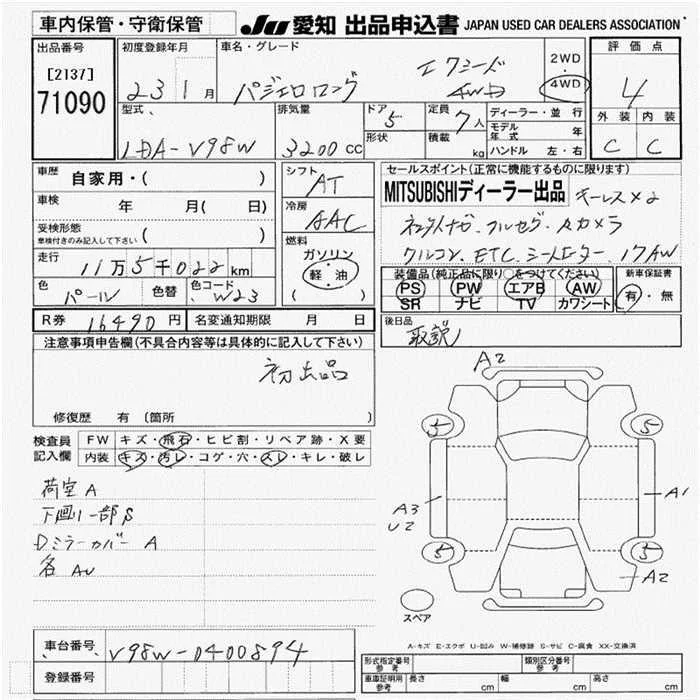 車内保管・守衛保管
JU 愛知 出品申込書 JAPAN USED CAR DEALERS ASSOCIATION
出品番号 初度登録年月 車名・グレード 評価点
[2137]
71090
23 1月 パジェロロング エクシード 4WD
2WD
・
4WD
4
型式 排気量 ドア 5 定員 7人 ディーラー・並行 外装 内装
LDA-V98W 3200CC 形状 積載 kg モデル年式 年
ハンドル 左・右
C C
車歴 自家用・( )
シフト AT
セールスポイント(正常に機能するものに限ります)
MITSUBISHIディーラー出品 キーレス×2
車検 年 月( 日)
冷房 AAC
受検形態 ( )
車検付きのみ記入して下さい
燃料
ガソリン
軽油
クルコン、ETC、シートヒーター、17AW
走行 11万5千022km
装備品(純正品に限り○をつけてください) 新車保証書
PS PW エアB AW
SR ナビ TV カワシート
有・無
色 パール 色替 色コード W23
R券 16490円 名変通知期限 月 日
後日品
取説
注意事項申告欄(不具合内容等は具体的に記入して下さい)
初出品
修復歴 有 (箇所 )
検査員記入欄
FW キズ・飛石・ヒビ割・リペア跡・X要
内装 キズ・汚レ・コゲ・穴・スレ・キレ・破レ
荷室 A
下廻り一部S
Dミラーカバー A
各 AU
A2
5 5
A3
U2
A1
5 5
A2
スペア
A-キズ E-エクボ U-凹み W-補修跡 S-サビ C-腐食 XX-交換済
車台番号 V98W-0400894
登録番号
型式指定番号 参考 類別区分番号 参考
車庫証明用 参考 長さ cm 幅 cm 高さ cm